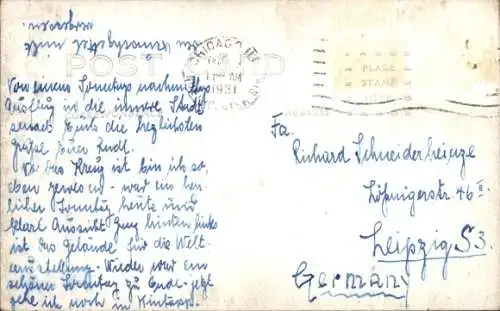 CHICAGO, ILL.
1931
POST CARD
PLACE
STAMP
HERE
Von einem Sonntag nachmittags
Ausflug in die innere Stadt
sendet Euch die herzlichsten
Grüße Euer
Wo das Kreuz ist bin ich so
eben gewesen - war ein herr
licher Sonntag heute und
klare Aussicht. Ganz hinten links
ist das Gelände für die Welt-
ausstellung. Wieder war ein
schöner Sonntag zu Ende. jetzt
gehe ich noch in
Fa.
Richard Schneiderheinze
Lößnigerstr 46 II
Leipzig S3.
Germany